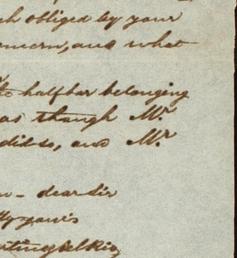 ch obliged by your
oncern, and what
to half her belonging
as though Mr.
did so, and Mr.
dear Sir
yours